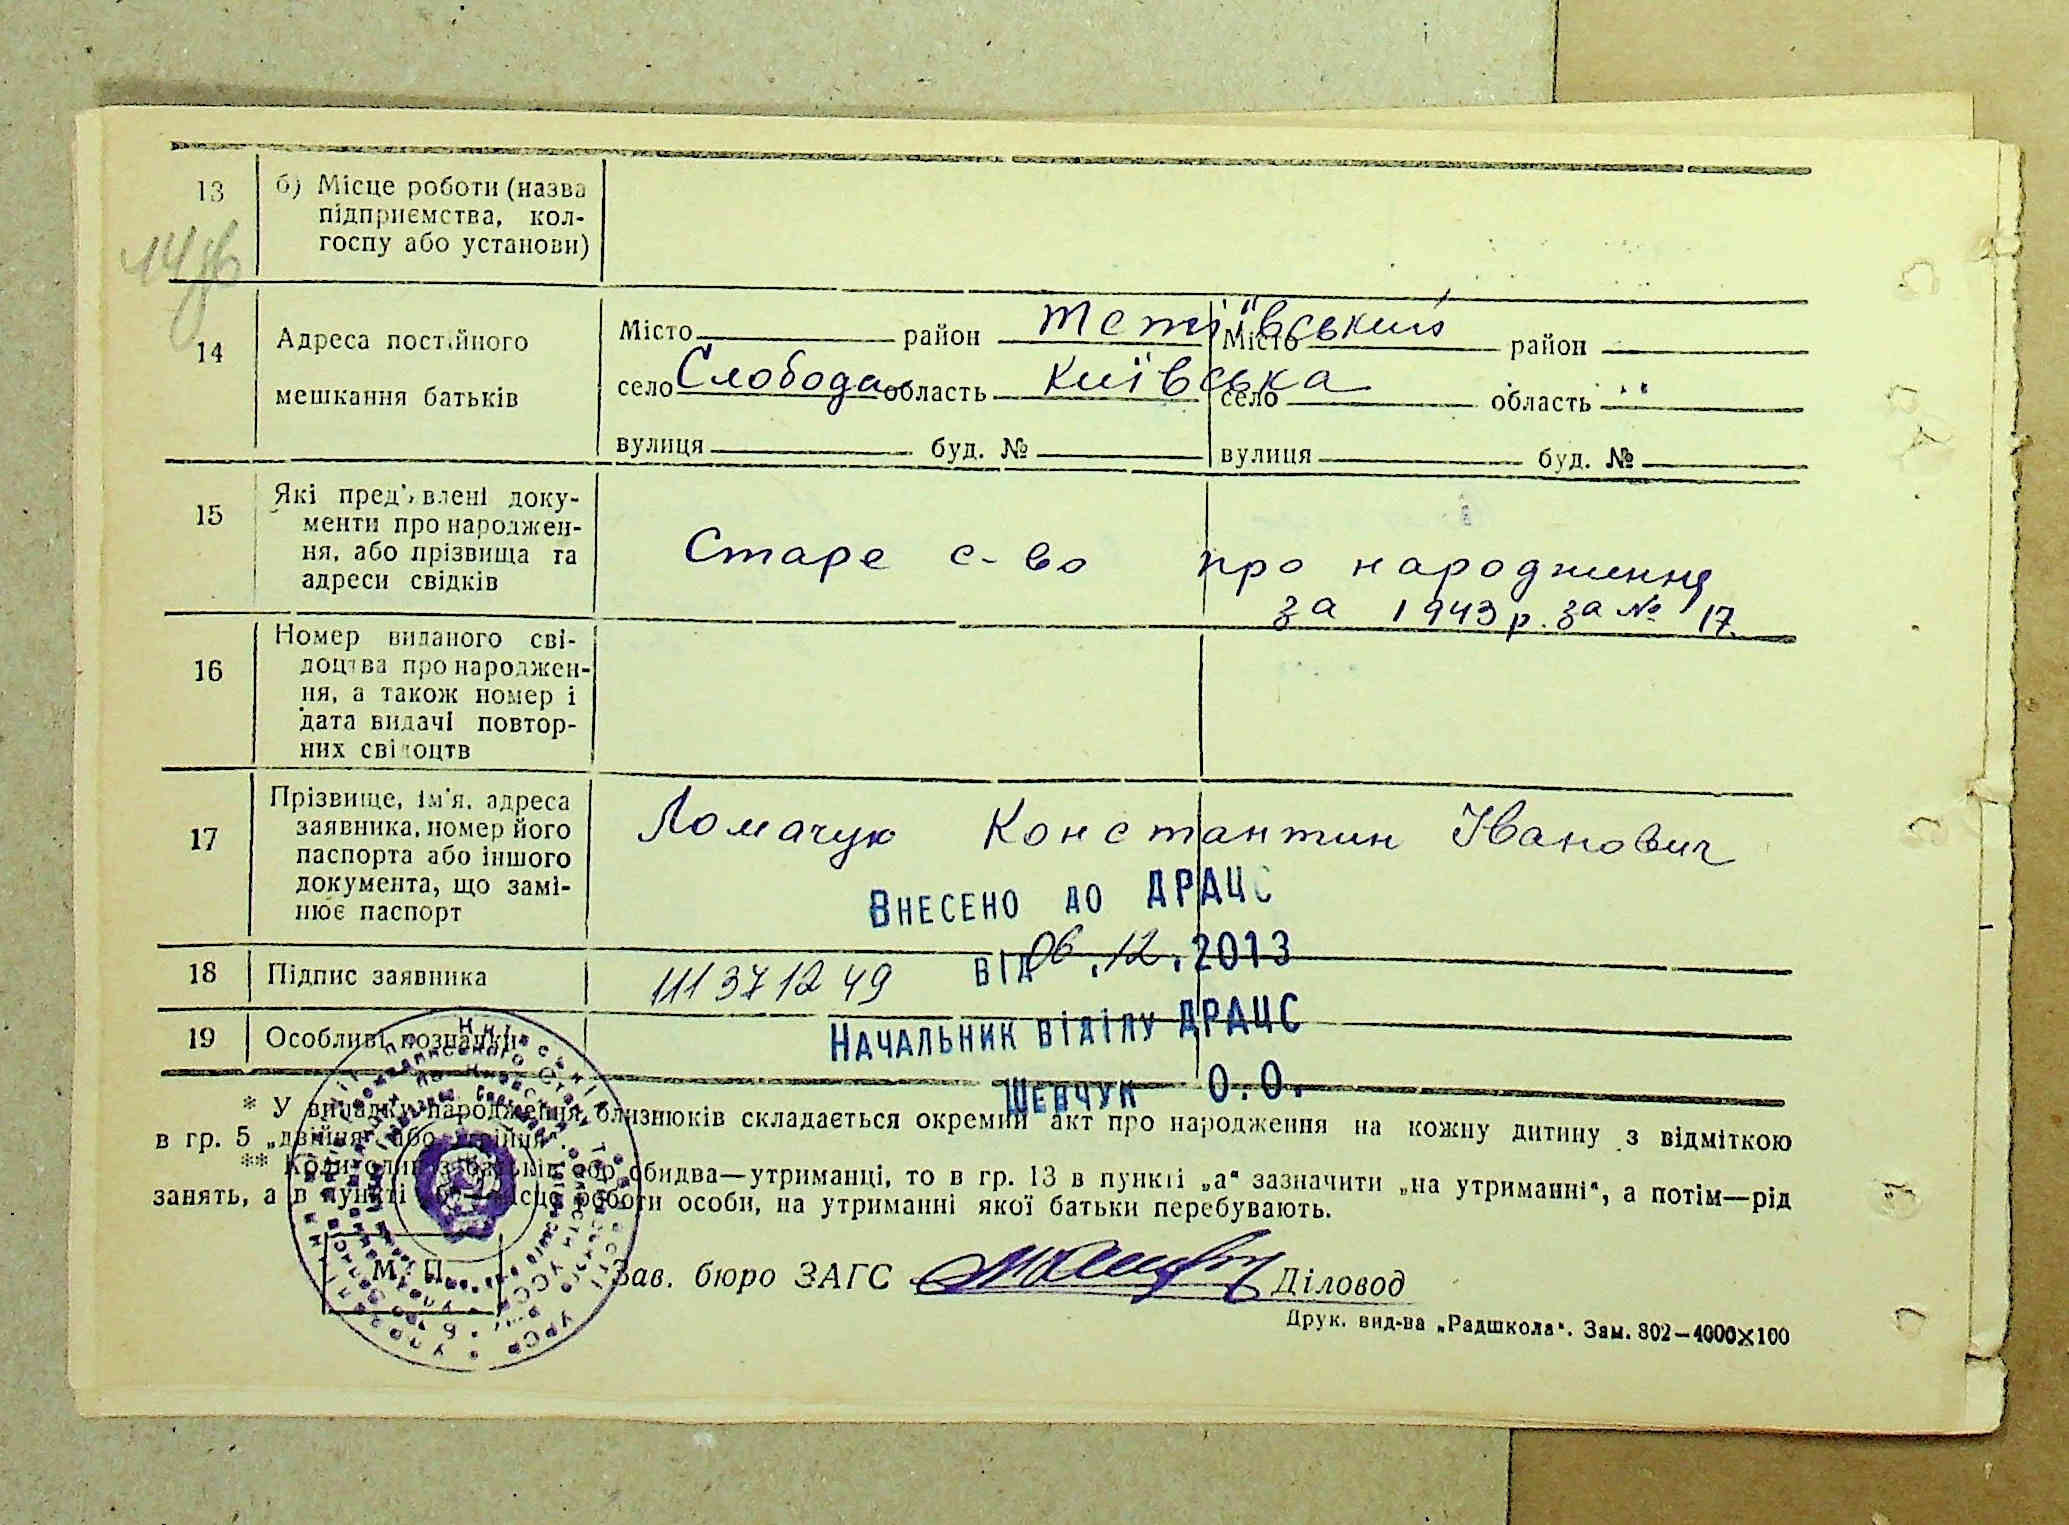 13 б) Місце роботи (назва
підприємства, кол-
госпу або установи)
14 Адреса постійного
мешкання батьків
Місто район Тетіївський Місто район
село Слобода область Київська село область
вулиця буд. № вулиця буд. №
15 Які пред'влені доку-
менти про народжен-
ня, або прізвища та
адреси свідків
Старе с-во про народження
за 1943 р. за № 17.
16 Номер виданого сві-
доцтва про народжен-
ня, а також номер і
дата видачі повтор-
них свідоцтв
17 Прізвище, ім'я, адреса
заявника, номер його
паспорта або іншого
документа, що замі-
нює паспорт
Ломачук Константин Іванович
Внесено до ДРАЦС
від 06.12.2013
18 Підпис заявника
111 371249
Начальник відділу ДРАЦС
19 Особливі позначки
Шевчук О.О.
* У випадку народження близнюків складається окремий акт про народження на кожну дитину з відміткою
в гр. 5 „двійня" або „трійня".
обидва—утриманці, то в гр. 13 в пункті „а" зазначити „на утриманні", а потім—рід
занять, а в пункті місце роботи особи, на утриманні якої батьки перебувають.
М. П.
Зав. бюро ЗАГС Діловод
Друк. вид-ва „Радшкола". Зам. 802—4000×100